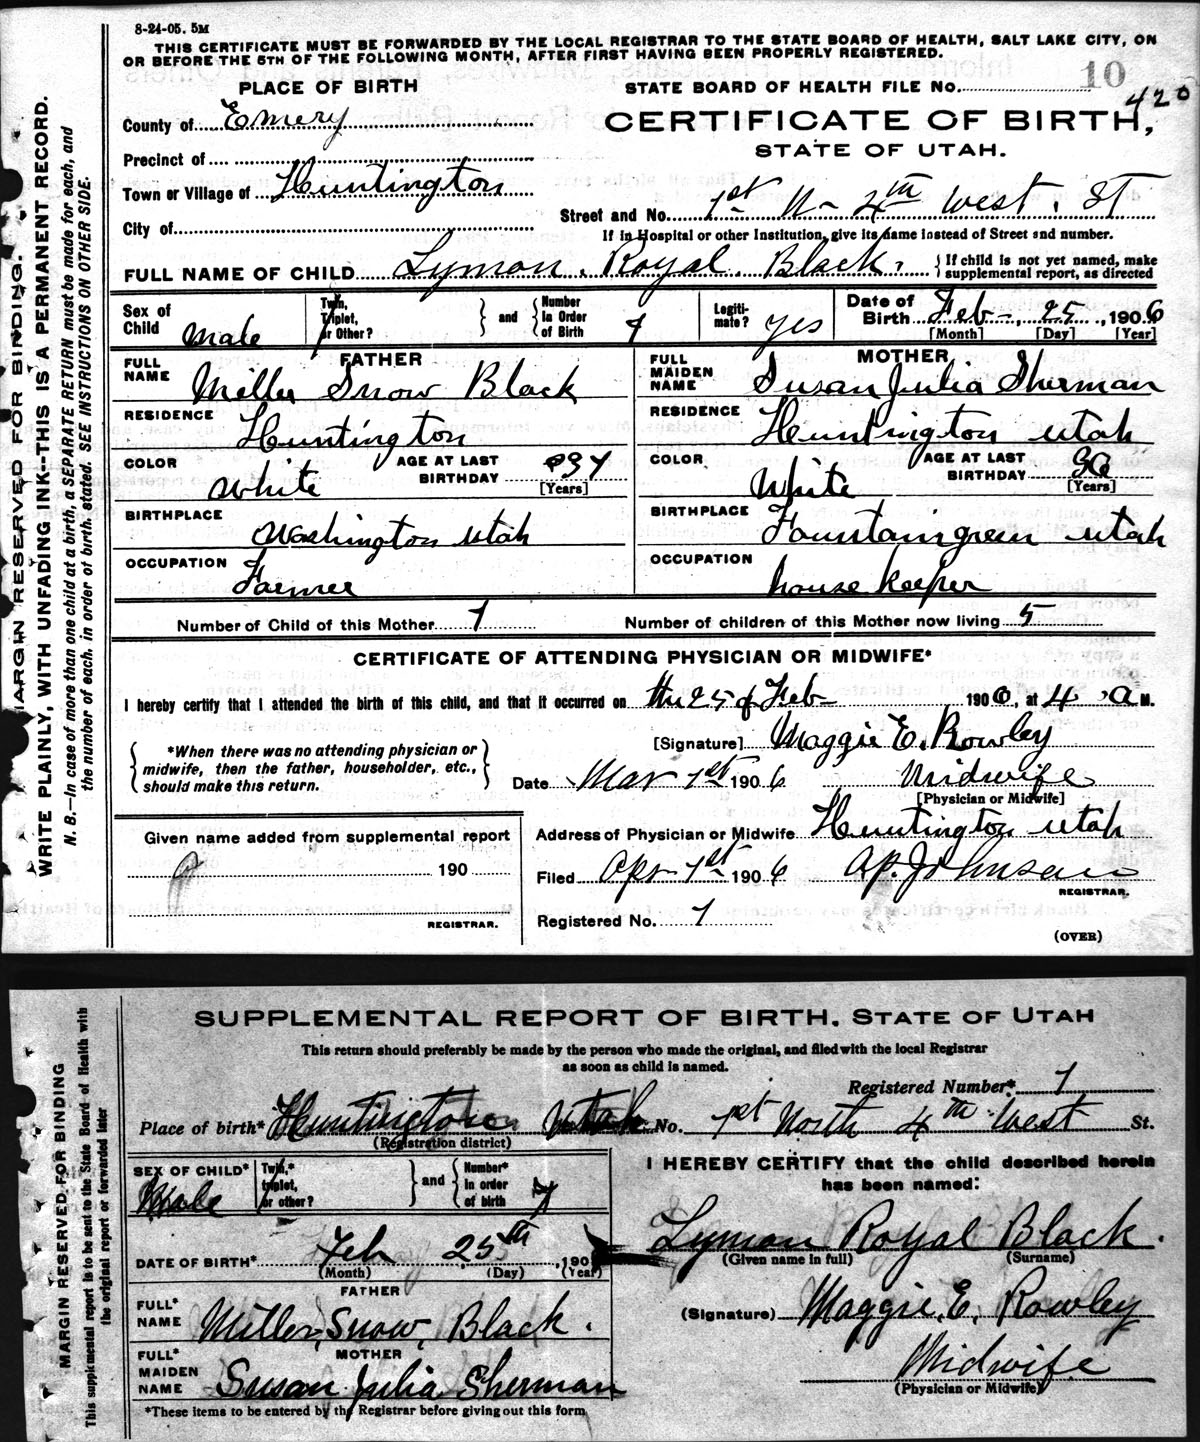 8-24-05. 5M
THIS CERTIFICATE MUST BE FORWARDED BY THE LOCAL REGISTRAR TO THE STATE BOARD OF HEALTH, SALT LAKE CITY, ON
OR BEFORE THE 5TH OF THE FOLLOWING MONTH, AFTER FIRST HAVING BEEN PROPERLY REGISTERED.
MARGIN RESERVED FOR BINDING.
WRITE PLAINLY, WITH UNFADING INK--THIS IS A PERMANENT RECORD.
N. B.—In case of more than one child at a birth, a SEPARATE RETURN must be made for each, and
the number of each, in order of birth, stated. SEE INSTRUCTIONS ON OTHER SIDE.
PLACE OF BIRTH
STATE BOARD OF HEALTH FILE No. 10
420
County of Emery
CERTIFICATE OF BIRTH,
STATE OF UTAH.
Precinct of
Town or Village of Huntington
Street and No. 1st N- 4th West. St
City of
If in Hospital or other Institution, give its name instead of Street and number.
FULL NAME OF CHILD Lyman Royal Black. {If child is not yet named, make
supplemental report, as directed
Sex of Child Male
Twin, Triplet, or Other? } and { Number In Order of Birth 7
Legitimate? yes
Date of Birth Feb- 25, 1906
[Month] [Day] [Year]
FATHER
FULL NAME Miller Snow Black
MOTHER
FULL MAIDEN NAME Susan Julia Sherman
RESIDENCE Huntington
RESIDENCE Huntington utah
COLOR White AGE AT LAST BIRTHDAY 37 [Years]
COLOR White AGE AT LAST BIRTHDAY [Years]
BIRTHPLACE Washington utah
BIRTHPLACE Fountaingreen utah
OCCUPATION Farmer
OCCUPATION house keeper
Number of Child of this Mother 7 Number of children of this Mother now living 5
CERTIFICATE OF ATTENDING PHYSICIAN OR MIDWIFE*
I hereby certify that I attended the birth of this child, and that it occurred on the 25 of Feb- 1906, at 4 a M.
*When there was no attending physician or
midwife, then the father, householder, etc.,
should make this return.
[Signature] Maggie E. Rowley
Date Mar 1st 1906 Midwife
[Physician or Midwife]
Given name added from supplemental report
190
REGISTRAR.
Address of Physician or Midwife Huntington utah
Filed Apr 1st 1906 A.P. Johnson
REGISTRAR.
Registered No. 7
(OVER)
MARGIN RESERVED FOR BINDING
This supplemental report is to be sent to the State Board of Health with
the original report or forwarded later
SUPPLEMENTAL REPORT OF BIRTH. STATE OF UTAH
This return should preferably be made by the person who made the original, and filed with the local Registrar
as soon as child is named.
Registered Number* 7
Place of birth* Huntington Utah No. 1st North 4th West St.
(Registration district)
SEX OF CHILD* Male
Twin,* triplet, or other? } and { Number* in order of birth 7
I HEREBY CERTIFY that the child described herein
has been named:
DATE OF BIRTH* Feb 25th, 190
(Month) (Day) (Year)
Lyman Royal Black.
(Given name in full) (Surname)
FATHER
FULL* NAME Miller, Snow, Black.
(Signature) Maggie, E, Rowley
MOTHER
FULL* MAIDEN NAME Susan Julia Sherman
Midwife
(Physician or Midwife)
*These items to be entered by the Registrar before giving out this form